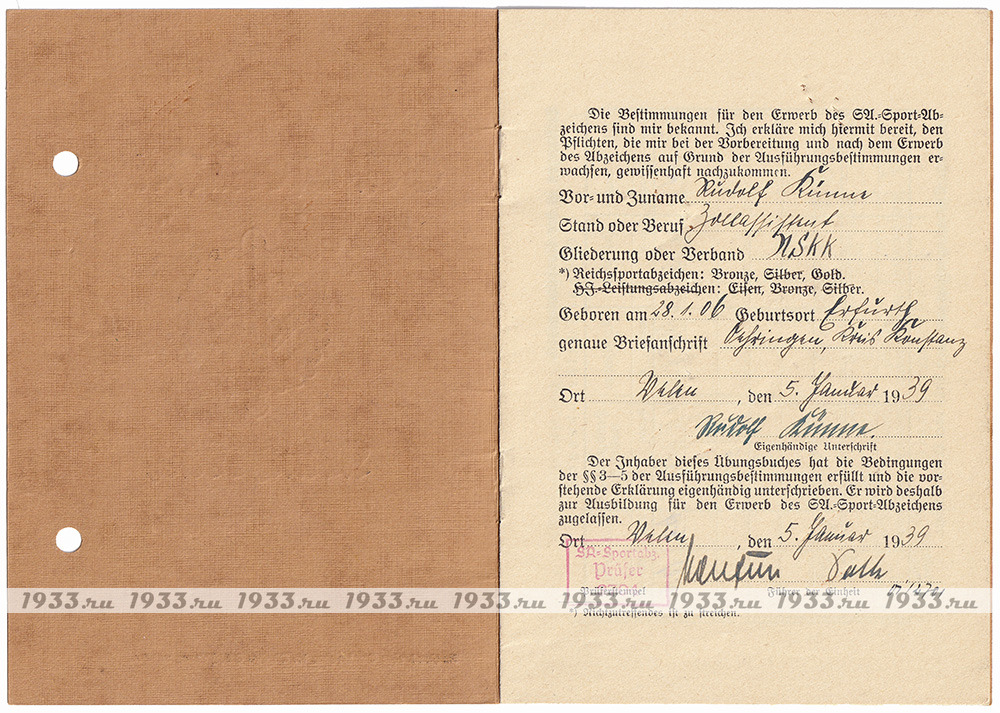 Die Bestimmungen für den Erwerb des SA.-Sport-Ab-
zeichens sind mir bekannt. Ich erkläre mich hiermit bereit, den
Pflichten, die mir bei der Vorbereitung und nach dem Erwerb
des Abzeichens auf Grund der Ausführungsbestimmungen er-
wachsen, gewissenhaft nachzukommen.
Vor- und Zuname Rudolf Künne
Stand oder Beruf Zollassistent
Gliederung oder Verband NSKK
*) Reichssportabzeichen: Bronze, Silber, Gold.
HJ.-Leistungsabzeichen: Eisen, Bronze, Silber.
Geboren am 28.1.06 Geburtsort Erfurth
genaue Briefanschrift Kreis Konstanz
Ort Velen, den 5. Januar 1939
Rudolf Künne.
Eigenhändige Unterschrift
Der Inhaber dieses Übungsbuches hat die Bedingungen
der §§ 3—5 der Ausführungsbestimmungen erfüllt und die vor-
stehende Erklärung eigenhändig unterschrieben. Er wird deshalb
zur Ausbildung für den Erwerb des SA.-Sport-Abzeichens
zugelassen.
Ort Velen, den 5. Januar 1939
SA-Sportabz.
Prüfer
Prüferstempel Führer der Einheit
1933.ru 1933.ru 1933.ru 1933.ru 1933.ru 1933.ru 1933.ru 1933.ru 1933.ru
*) Nichtzutreffendes ist zu streichen.